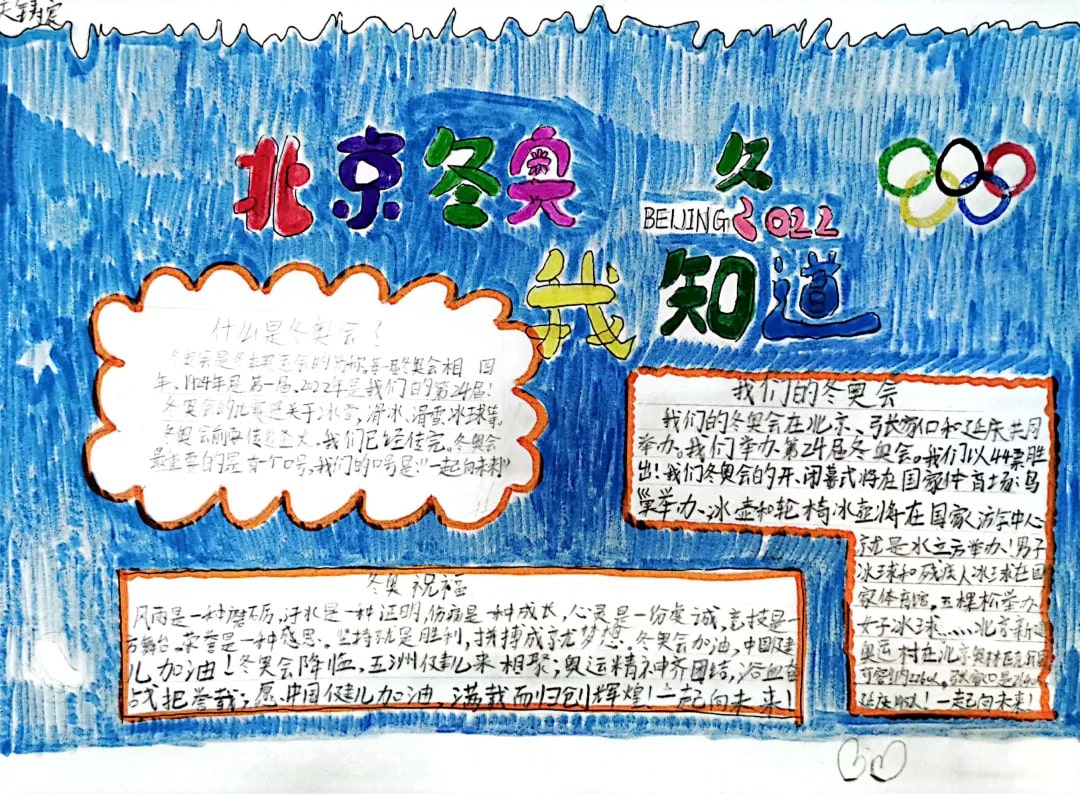 北京冬奥
冬
BEIJING 2022
我知道
什么是冬奥会?
冬奥会是冬季奥运会的简称每一届冬奥会相 四
年、1924年是第一届、2022年是我们的第24届!
冬奥会的比赛是关于冰雪,滑冰、滑雪冰球等。
冬奥会前要传递圣火,我们已经传完。冬奥会
最重要的是有个口号,我们的口号是“一起向未来!”
我们的冬奥会
我们的冬奥会在北京、张家口和延庆共同
举办。我们举办第24届冬奥会。我们以44票胜
出!我们冬奥会的开、闭幕式将在国家体育场:鸟
巢举办、冰壶和轮椅冰壶将在国家游泳中心
就是水立方举办!男子
冰球和残疾人冰球在国
家体育馆,五棵松举办
女子冰球……北京新建
奥运村在北京奥林匹克
张家口是
延庆 一起向未来!
冬奥祝福
风雨是一种磨砺,汗水是一种证明,伤痛是一种成长,心灵是一份虔诚,竞技是一
方舞台。荣誉是一种感恩。坚持就是胜利,拼搏成就梦想。冬奥会加油,中国健
儿加油!冬奥会降临,五洲健儿来相聚;奥运精神齐团结,浴血奋
战把誉载;愿中国健儿加油,满载而归创辉煌!一起向未来!